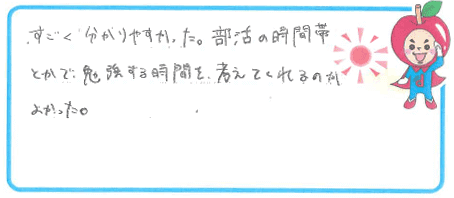 すごく分かりやすかった。部活の時間帯
とかで勉強する時間を考えてくれるのが
よかった。